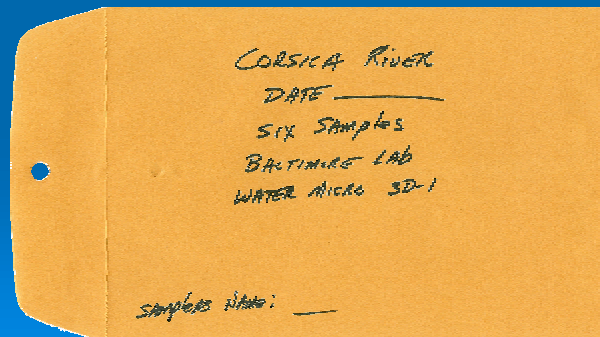 CORSICA RIVER
DATE ________
SIX SAMPLES
BALTIMORE LAB
WATER MICRO 3D-1
SAMPLERS NAME: ___